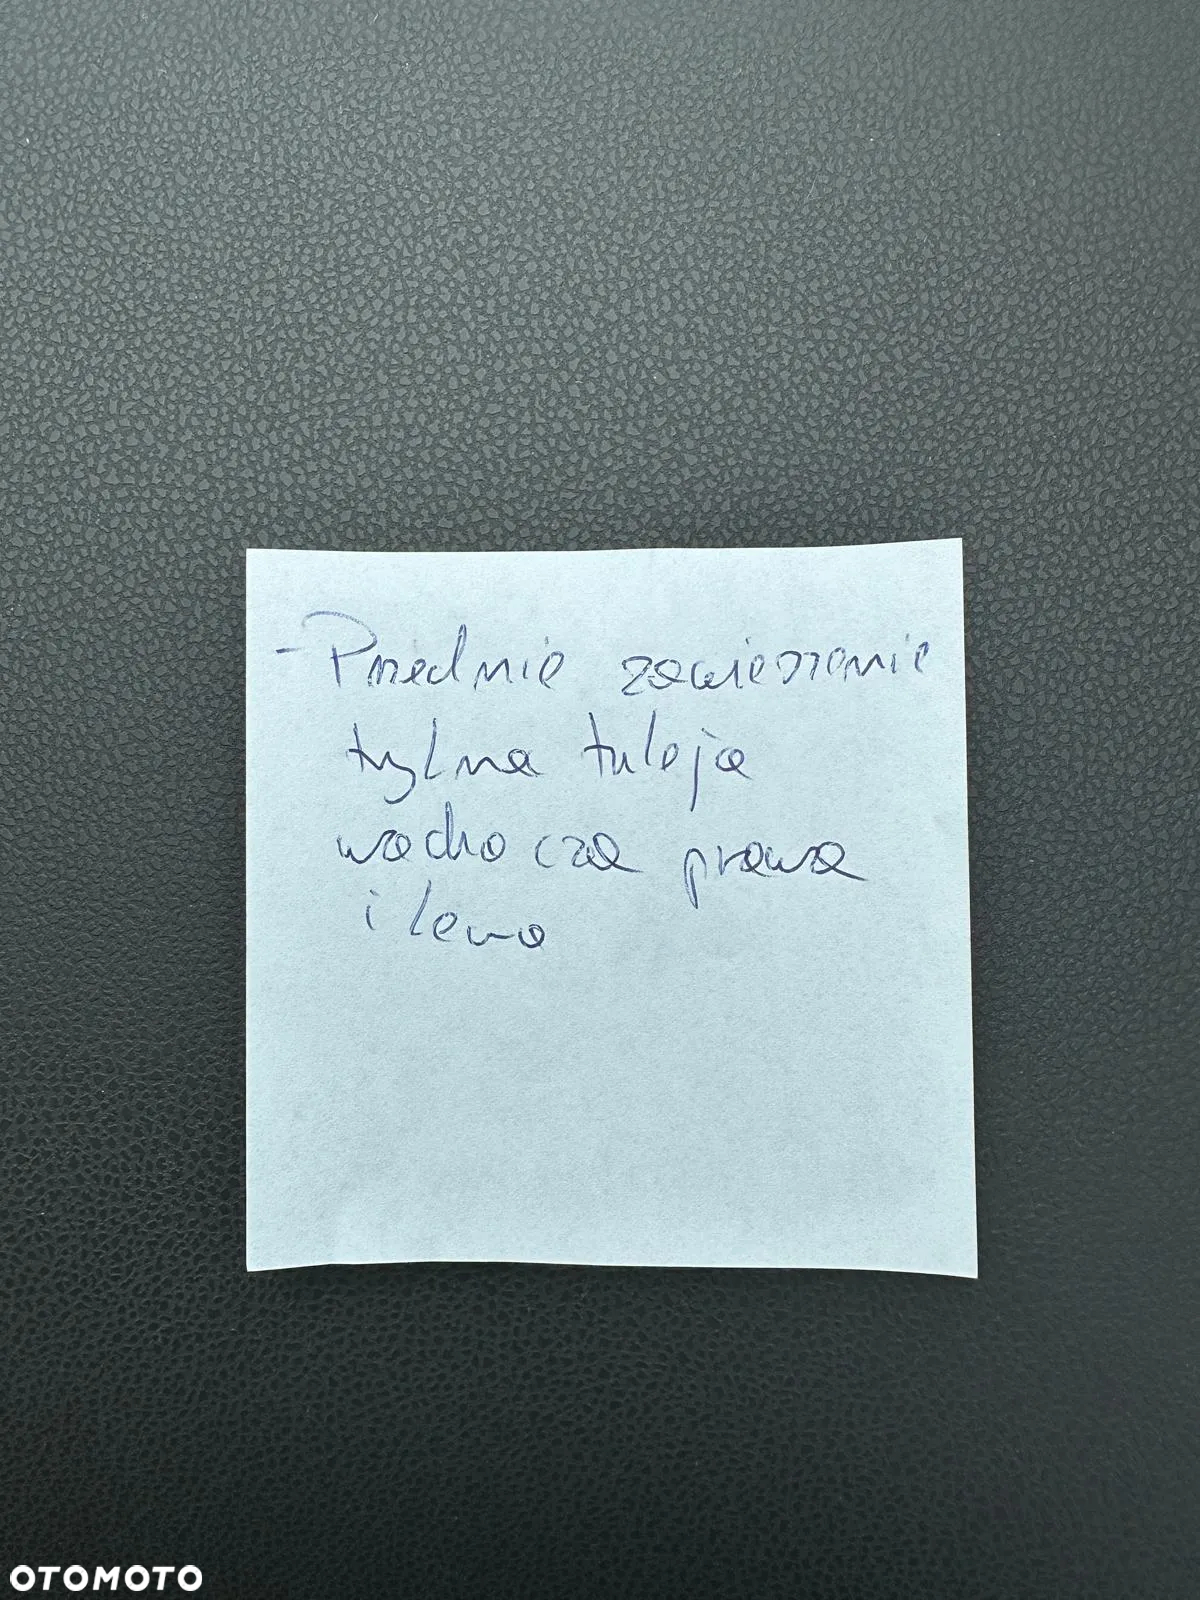 - Przednie zawieszenie
tylna tuleja
wachacza prawa
i lewa
OTOMOTO